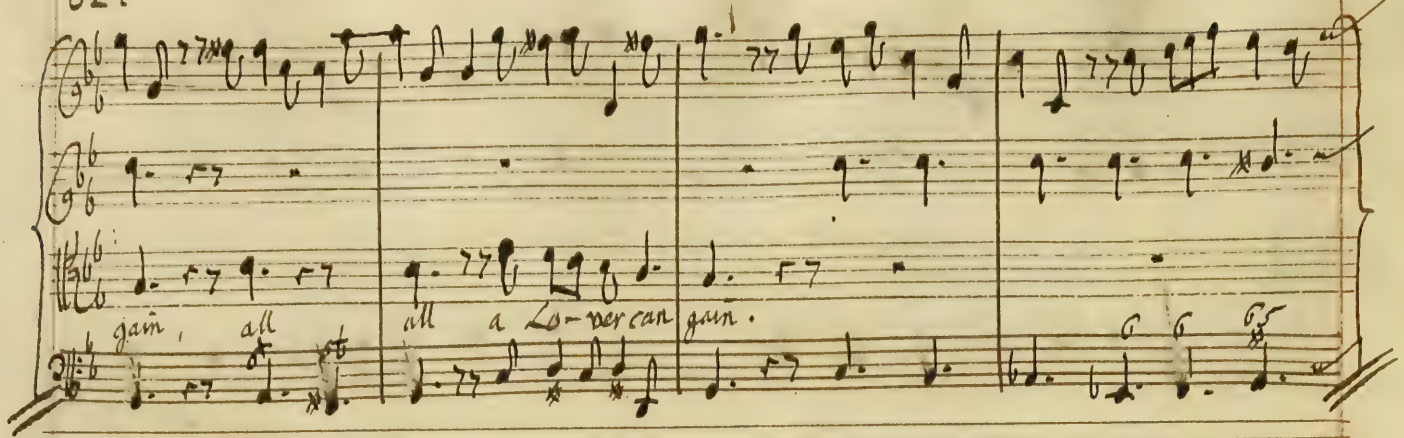 gain, all all a Lo-ver can gain.
6 6 65